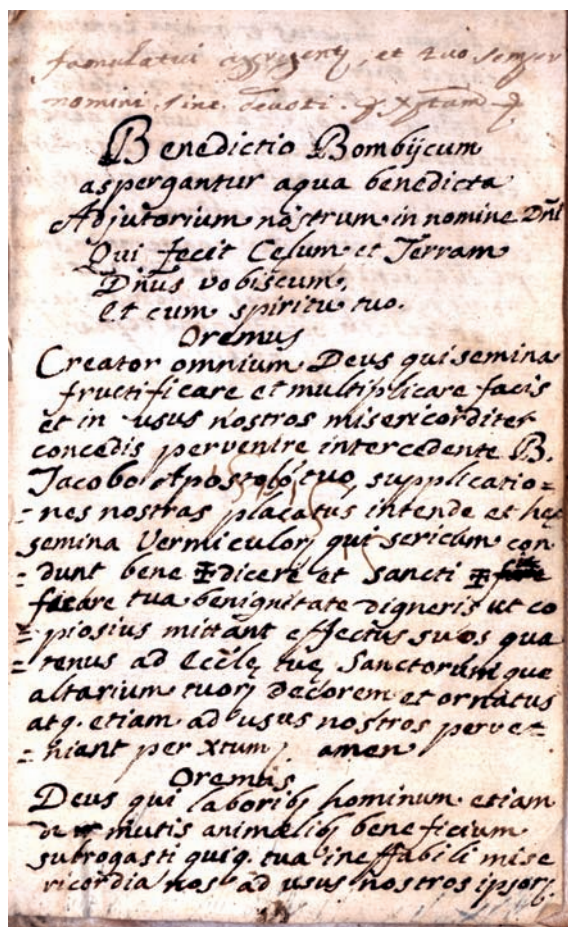 famulatui aggregentꝫ, et tuo semper
nomini sint devoti. ꝑ Xptum
Benedictio Bombijcum
aspergantur aqua benedicta
Adjutorium nostrum in nomine Dñi
Qui fecit Celum et Terram
Dñus vobiscum,
Et cum spiritu tuo.
Oremus
Creator omnium Deus qui semina
fructificare et multiplicare facis
et in usus nostros misericorditer
concedis pervenire intercedente B.
Jacobo Apostolo tuo, supplicatio=
=nes nostras placatus intende et hęc
semina Vermiculorꝫ qui sericum con
=dunt bene ✠ dicere et sancti ✠
ficare tua benignitate digneris ut co
=piosius mittant effectus suos qua
=tenus ad Ecclę tuę Sanctorumque
altarium tuorꝫ decorem et ornatus
atq. etiam ad usus nostros perve=
=niant per Xtum amen
Oremus
Deus qui laboribꝫ hominum etiam
de mutis animalibꝫ beneficium
subrogasti quiq. tua ineffabili mise
ricordia nos ad usus nostros ipsorꝫ